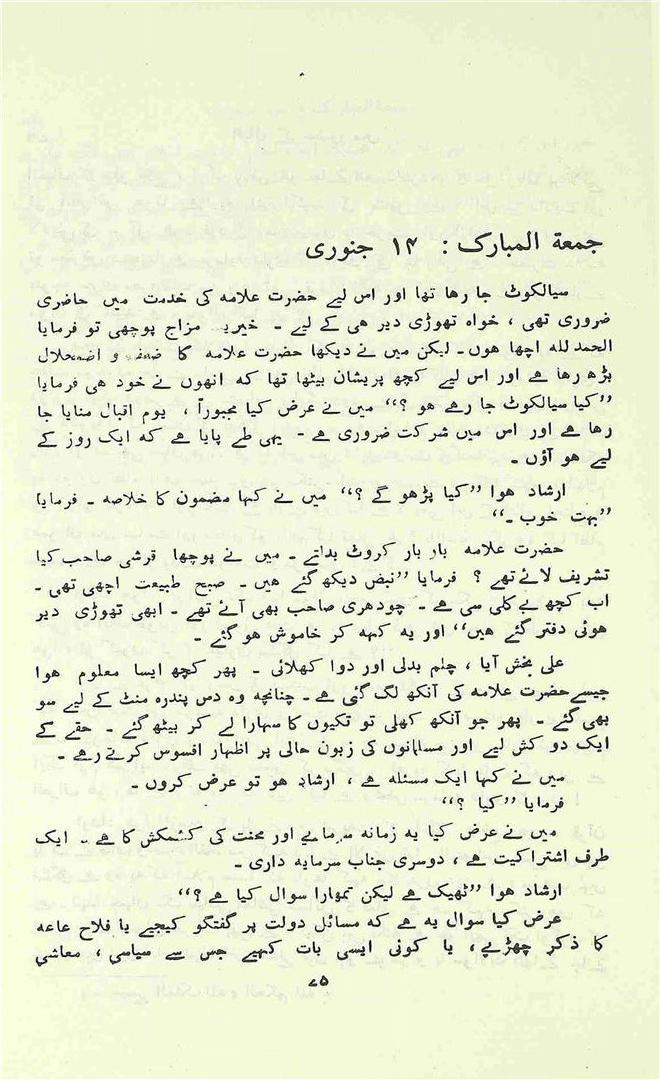 جمعة المبارک : ۱۴ جنوری
سیالکوٹ جا رہا تھا اور اس لیے حضرت علامہ کی خدمت میں حاضری
ضروری تھی ، خواہ تھوڑی دیر ہی کے لیے ۔ خیریت مزاج پوچھی تو فرمایا
الحمد للہ اچھا ہوں ۔ لیکن میں نے دیکھا حضرت علامہ کا ضعف و اضمحلال
بڑھ رہا ہے اور اس لیے کچھ پریشان بیٹھا تھا کہ انھوں نے خود ہی فرمایا
”کیا سیالکوٹ جا رہے ہو ؟“ میں نے عرض کیا مجبوراً ، یوم اقبال منایا جا
رہا ہے اور اس میں شرکت ضروری ہے ۔ یہی طے پایا ہے کہ ایک روز کے
لیے ہو آؤں ۔
ارشاد ہوا ”کیا پڑھو گے ؟“ میں نے کہا مضمون کا خلاصہ ۔ فرمایا
”بہت خوب ۔“
حضرت علامہ بار بار کروٹ بدلتے ۔ میں نے پوچھا قرشی صاحب کیا
تشریف لائے تھے ؟ فرمایا ”نبض دیکھ گئے ہیں ۔ صبح طبیعت اچھی تھی ۔
اب کچھ بے کلی سی ہے ۔ چودھری صاحب بھی آئے تھے ۔ ابھی تھوڑی دیر
ہوئی دفتر گئے ہیں“ اور یہ کہہ کر خاموش ہو گئے ۔
علی بخش آیا ، چلم بدلی اور دوا کھلائی ۔ پھر کچھ ایسا معلوم ہوا
جیسے حضرت علامہ کی آنکھ لگ گئی ہے ۔ چنانچہ وہ دس پندرہ منٹ کے لیے سو
بھی گئے ۔ پھر جو آنکھ کھلی تو تکیوں کا سہارا لے کر بیٹھ گئے ۔ حقے کے
ایک دو کش لیے اور مسلمانوں کی زبون حالی پر اظہار افسوس کرتے رہے ۔
میں نے کہا ایک مسئلہ ہے ، ارشاد ہو تو عرض کروں ۔
فرمایا ”کیا ؟“
میں نے عرض کیا یہ زمانہ سرمایے اور محنت کی کشمکش کا ہے ۔ ایک
طرف اشتراکیت ہے ، دوسری جناب سرمایہ داری ۔
ارشاد ہوا ”ٹھیک ہے لیکن تمھارا سوال کیا ہے ؟“
عرض کیا سوال یہ ہے کہ مسائل دولت پر گفتگو کیجیے یا فلاح عامہ
کا ذکر چھڑیے ، یا کوئی ایسی بات کہیے جس سے سیاسی ، معاشی
۷۵